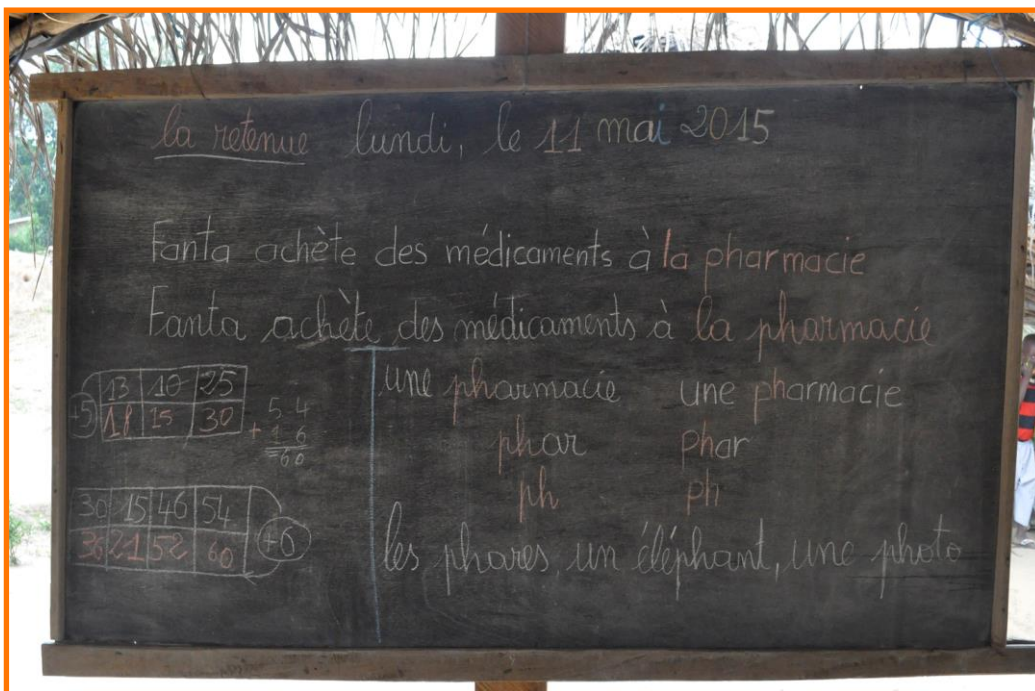 la retenue lundi, le 11 mai 2015
Fanta achète des médicaments à la pharmacie
Fanta achète des médicaments à la pharmacie
13 10 25
+5
18 15 30
5 4
+ 1 6
=60
30 15 46 54
+6
36 21 52 60
une pharmacie une pharmacie
phar phar
ph ph
les phares, un éléphant, une photo